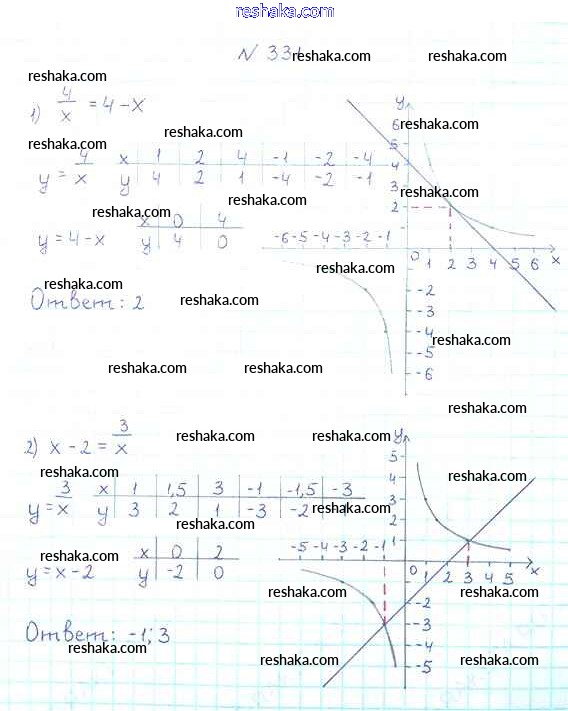 reshaka.com
N 331
reshaka.com reshaka.com
reshaka.com
1) 4/x = 4 - x
reshaka.com
reshaka.com
reshaka.com
y = 4/x x 1 2 4 -1 -2 -4
y 4 2 1 -4 -2 -1
reshaka.com
reshaka.com
reshaka.com
y = 4 - x x 0 4
y 4 0
y
6
5
4
3
2
-6 -5 -4 -3 -2 -1
0 1 2 3 4 5 6 x
-2
-3
-4
-5
-6
reshaka.com
reshaka.com
Ответ: 2
reshaka.com
reshaka.com
reshaka.com reshaka.com
reshaka.com
2) x - 2 = 3/x
reshaka.com reshaka.com
reshaka.com
reshaka.com
y = 3/x x 1 1,5 3 -1 -1,5 -3
y 3 2 1 -3 -2
reshaka.com
reshaka.com
reshaka.com
y = x - 2 x 0 2
y -2 0
y
5
4
3
2
1
-5 -4 -3 -2 -1
0 1 2 3 4 5 x
-2
-3
-4
-5
reshaka.com
reshaka.com
Ответ: -1; 3
reshaka.com
reshaka.com
reshaka.com